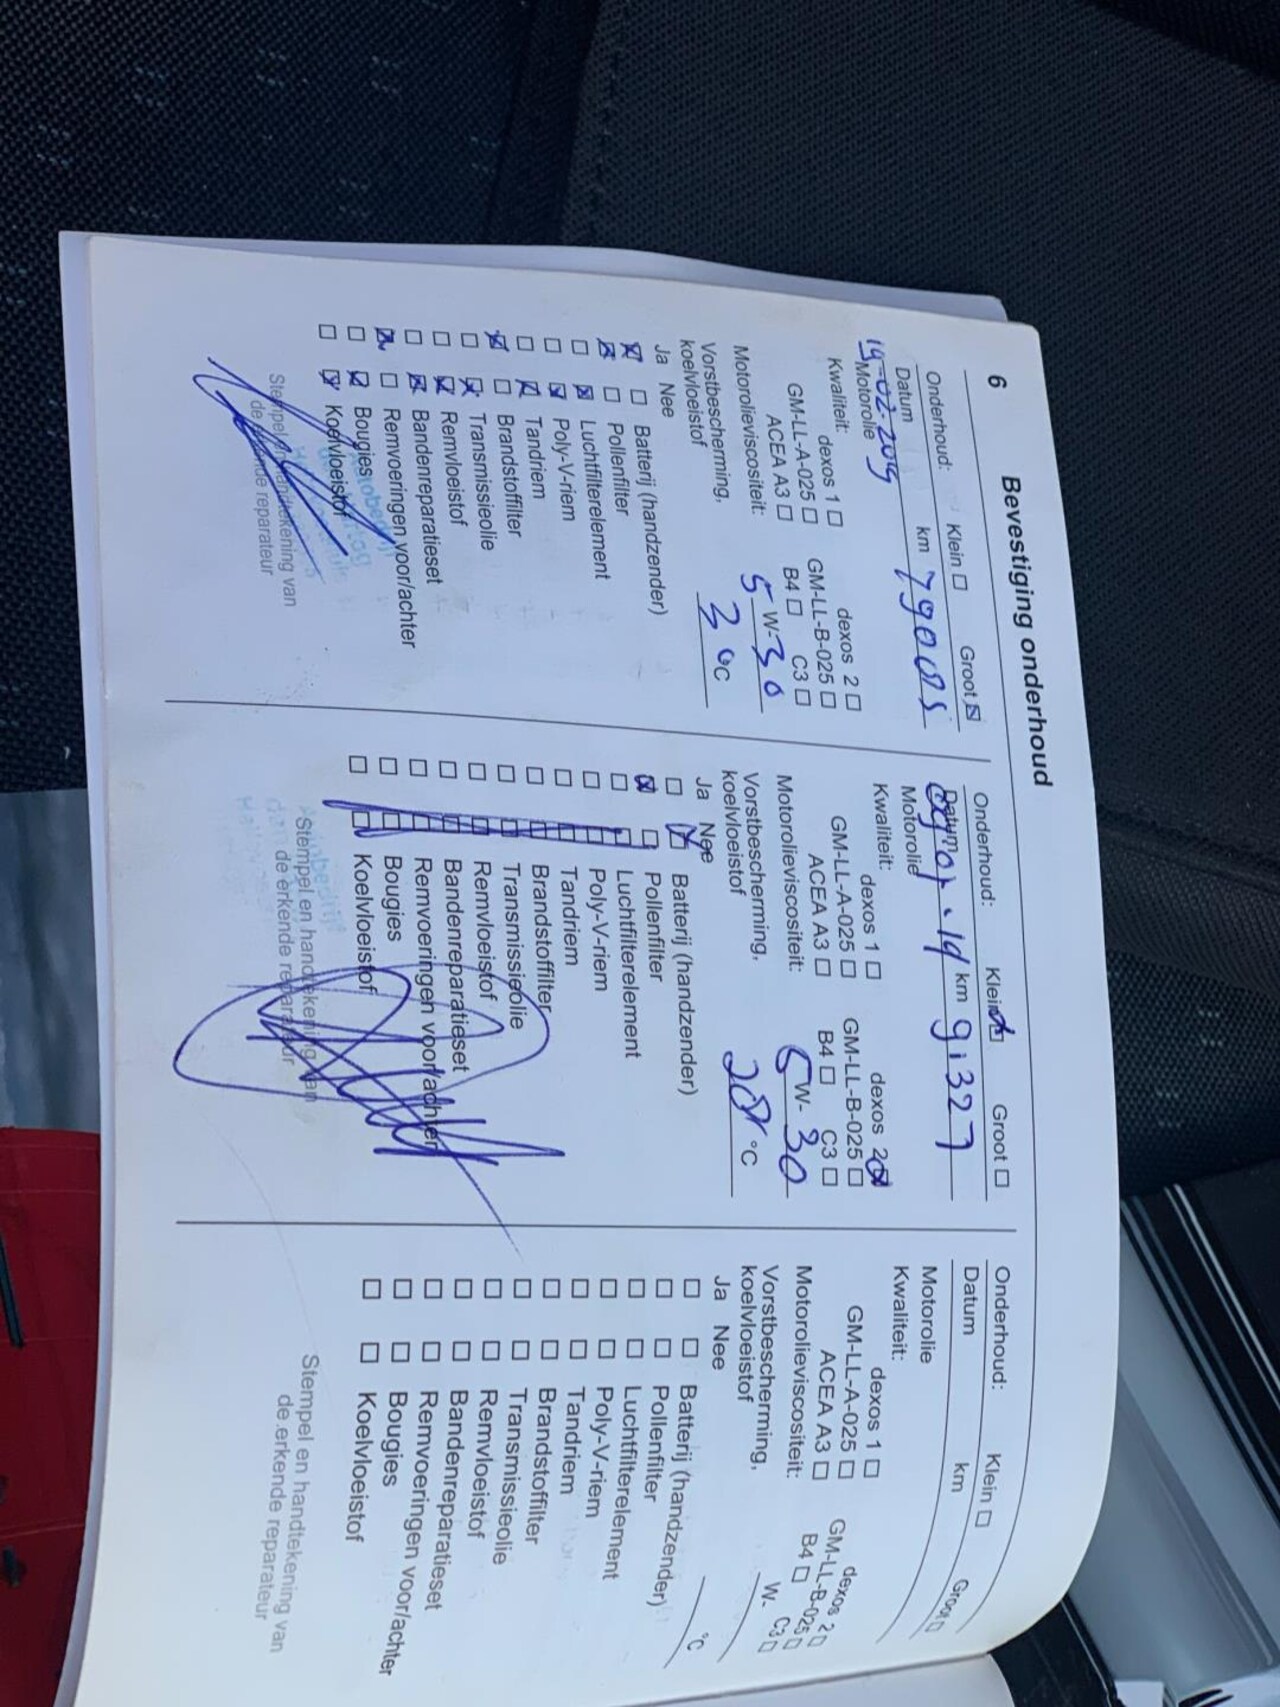 6 Bevestiging onderhoud
Onderhoud: Klein ☐ Groot ☒
Datum km 79005
19-02-2019
Motorolie
Kwaliteit: dexos 1 ☐ dexos 2 ☐
GM-LL-A-025 ☐ GM-LL-B-025 ☐
ACEA A3 ☐ B4 ☐ C3 ☐
Motorolieviscositeit: 5 W-30
Vorstbescherming,
koelvloeistof 30 °C
Ja Nee
☒ ☐ Batterij (handzender)
☒ ☐ Pollenfilter
☐ ☒ Luchtfilterelement
☐ ☒ Poly-V-riem
☐ ☒ Tandriem
☒ ☐ Brandstoffilter
☐ ☒ Transmissieolie
☐ ☒ Remvloeistof
☐ ☒ Bandenreparatieset
☒ ☐ Remvoeringen voor/achter
☐ ☒ Bougies
☐ ☒ Koelvloeistof
Stempel en handtekening van
de erkende reparateur
Onderhoud: Klein ☒ Groot ☐
Datum km 91327
Motorolie
Kwaliteit: dexos 1 ☐ dexos 2 ☒
GM-LL-A-025 ☐ GM-LL-B-025 ☐
ACEA A3 ☐ B4 ☐ C3 ☐
Motorolieviscositeit: 5 W-30
Vorstbescherming,
koelvloeistof °C
Ja Nee
☐ ☒ Batterij (handzender)
☒ ☐ Pollenfilter
☐ ☐ Luchtfilterelement
☐ ☐ Poly-V-riem
☐ ☐ Tandriem
☐ ☐ Brandstoffilter
☐ ☐ Transmissieolie
☐ ☐ Remvloeistof
☐ ☐ Bandenreparatieset
☐ ☐ Remvoeringen voor/achter
☐ ☐ Bougies
☐ ☐ Koelvloeistof
Stempel en handtekening van
de erkende reparateur
Onderhoud: Klein ☐ Groot ☐
Datum km
Motorolie
Kwaliteit: dexos 1 ☐ dexos 2 ☐
GM-LL-A-025 ☐ GM-LL-B-025 ☐
ACEA A3 ☐ B4 ☐ C3 ☐
Motorolieviscositeit: W-
Vorstbescherming,
koelvloeistof °C
Ja Nee
☐ ☐ Batterij (handzender)
☐ ☐ Pollenfilter
☐ ☐ Luchtfilterelement
☐ ☐ Poly-V-riem
☐ ☐ Tandriem
☐ ☐ Brandstoffilter
☐ ☐ Transmissieolie
☐ ☐ Remvloeistof
☐ ☐ Bandenreparatieset
☐ ☐ Remvoeringen voor/achter
☐ ☐ Bougies
☐ ☐ Koelvloeistof
Stempel en handtekening van
de erkende reparateur